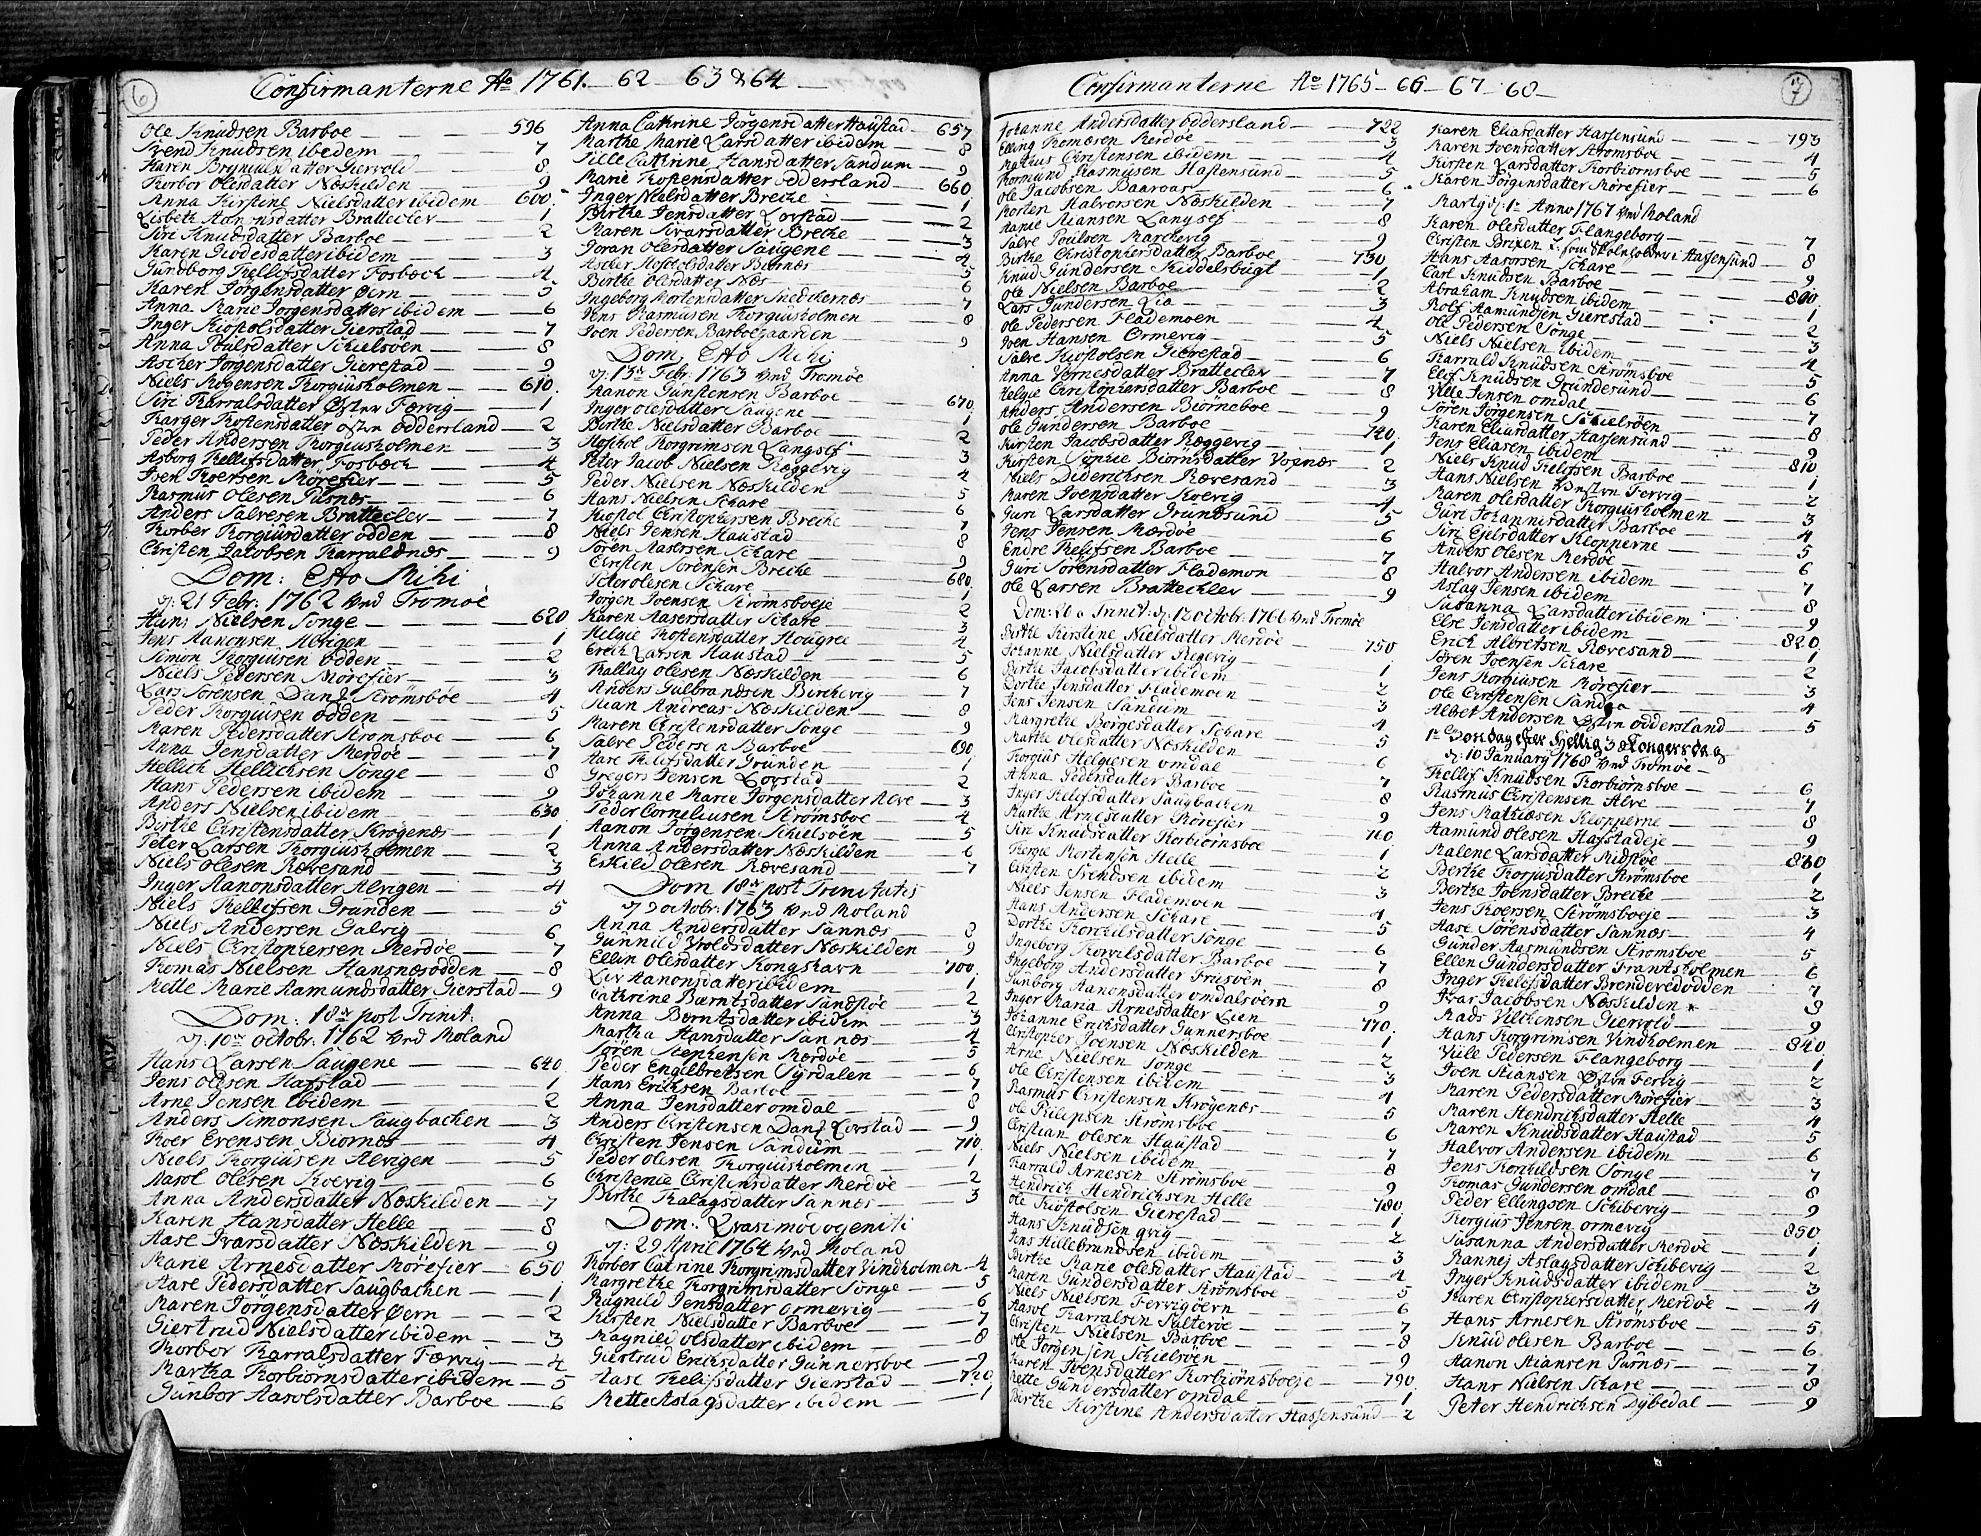 6
Confirmanterne Ao 1761.– 62 63 & 64
Ole Knudsen Barboe 596
Svend Knudsen ibidem 7
Karen Brynulfsdatter Giervold 8
Torbor Olesdatter Næskilden 9
Anna Kirstine Nielsdatter ibidem 600.
Lisbeth Aanonsdatter Bratteclev 1
Siri Knudsdatter Barboe 2
Karen Giodesdatter ibidem 3
Gundborg Kellifsdatter Fosbæck 4
Karen Jörgensdatter Öern 5
Anna Marie Jörgensdatter ibidem 6
Inger Kiostolsdatter Gierstad 7
Anna Poulsdatter Schielsöen 8
Ascher Jörgensdatter Gierestad 9
Niels Mogensen Torgiusholmen 610
Siri Tarralsdatter Østre Færvig 1
Targer Tostensdatter østre Oddersland 2
Peder Andersen Torgiusholmen 3
Asborg Kellifsdatter Fosbæck 4
Iven Roersen Mörefier 5
Rasmus Olesen Pusnæs 6
Anders Salvesen Bratteclev 7
Torbor Torgiusdatter Odden 8
Christen Jacobsen Tarraldnæs 9
Dom: Esto Mihi
d: 21 Febr: 1762 ved Tromöe
Hans Nielsen Songe 620
Jens Aanonsen Alvigen 1
Simon Torgiusen Odden 2
Niels Pedersen Mörefier 3
Lars Sörensen Dansk Strömsboe 4
Peder Torgiusen Odden 5
Maren Pedersdatter Strömsboe 6
Anna Jensdatter Merdöe 7
Hellich Hellichsen Songe 8
Hans Pedersen ibidem 9
Anders Nielsen ibidem 630
Birthe Christensdatter Krögenæs 1
Peter Larsen Torgiusholmen 2
Niels Olesen Rævesand 3
Inger Aanonsdatter Alvigen 4
Niels Kellifsen Grunden 5
Niels Andersen Galvig 6
Niels Christophersen Merdöe 7
Tomas Nielsen Hansnæsodden 8
Mette Marie Aamundsdatter Gierstad 9
Dom: 18de post Trinit:
d: 10de octobr: 1762 ved Moland
Hans Larsen Saugene 640
Jens Olesen Hafstad 1
Arne Jensen ibidem 2
Anders Simonsen Saugbachen 3
Roer Evensen Biornæs 4
Niels Torgiusen Alvigen 5
Aasol Olesen Roevig 6
Anna Andersdatter Næskilden 7
Karen Hansdatter Helle 8
Aase Ivarsdatter Næskilden 9
Marie Arnesdatter Mörefier 650
Aase Pedersdatter Saugbachen 1
Maren Jörgensdatter Öern 2
Giertrud Nielsdatter ibidem 3
Torbor Tarralsdatter Færvig 4
Martha Torbiörnsdatter ibidem 5
Gunbor Aasolsdatter Barboe 6
Anna Cathrine Jörgensdatter Haustad 657
Marthe Marie Larsdatter ibidem 8
Sille Cathrine Hansdatter Sandum 9
Marie Tostensdatter Oddersland 660
Inger Nielsdatter Breche 1
Birthe Jensdatter Lovstad 2
Karen Ivarsdatter Breche 3
Joran Olesdatter Saugene 4
Ascher Kiostolsdatter Biornæs 5
Birthe Olesdatter Næs 6
Ingeborg Mortensdatter Sneckernæs 7
Jens Rasmusen Torgiusholmen 8
Joen Pedersen Barboegaarden 9
Dom: Esto Mihi
d: 13de Febr: 1763 ved Tromöe
Aanon Gunstensen Barboe 670
Inger Olesdatter Saugene 1
Birthe Nielsdatter Barboe 2
Kiostol Torgrimsen Langsef 3
Peter Jacob Nielsen Ræggevig 4
Peder Nielsen Næskilden 5
Hans Nielsen Schare 6
Kiostol Christophersen Breche 7
Niels Jensen Haustad 8
Sören Aasersen Schare 9
Christen Sörensen Breche 680
Peter Olesen Schare 1
Jörgen Joensen Strömsboeje 2
Karen Aasersdatter Schare 3
Helgie Tostensdatter Hougree 4
Erich Larsen Haustad 5
Tallag Olesen Næskilden 6
Anders Gulbrandsen Birchevig 7
Stian Andreas Næskilden 8
Maren Christensdatter Songe 9
Salve Pedersen Barboe 690
Aase Kellifsdatter Grunden 1
Gregers Jensen Lovstad 2
Johanne Marie Jörgensdatter Alve 3
Peder Corneliusen Strömsboe 4
Aanon Jörgensen Schielsöen 5
Anna Andersdatter Næskilden 6
Eskild Olesen Rævesand 7
Dom 18de post Trinitatis
d 9 octobr: 1763 ved Moland
Anna Andersdatter Sannæs 8
Gunnild Uroldsdatter Næskilden 9
Ellin Olesdatter Kongshavn 700
Liv Aanonsdatter ibidem 1
Cathrine Berntsdatter Sandstöe 2
Anna Berntsdatter ibidem 3
Martha Hansdatter Sannæs 4
Sören Stephensen Mærdöe 5
Peder Engelbretsen Syrdalen 6
Hans Ericksen Barboe 7
Anna Jensdatter Omdal 8
Anders Christensen Dansk Lovstad 9
Christen Jensen Sandum 710
Peder Olesen Torgiusholmen 1
Christense Christensdatter Merdöe 2
Birthe Talagsdatter Sannæs 3
Dom: Qvasimodogeniti
d: 29 April 1764 ved Moland
Torber Catrine Torgrimsdatter Vindholmen 4
Margrethe Torgrimsdatter Songe 5
Ragnild Jensdatter Ormevig 6
Kirsten Nielsdatter Barboe 7
Magnild Olsdatter ibidem 8
Giertrud Ericksdatter Gunnersboe 9
Aase Kelifsdatter Gierstad 720
Mette Aslagsdatter ibidem 1
7
Confirmanterne Ao 1765– 66– 67– 68–
Johanne Andersdatter Oddersland 722
Elling Tomæsen Merdöe 3
Matheus Christensen ibidem 4
Tormund Rasmusen Hastensund 5
Ole Jacobsen Baaroas 6
Morten Halvorsen Næskilden 7
Hans Stiansen Langsef 8
Salve Poulsen Marchevig 9
Birthe Christophersdatter Barboe 730
Knud Gundersen Kiddelsbugt 1
Ole Nielsen Barboe 2
Lars Gundersen Lia 3
Ole Pedersen Flademoen 4
Joen Hansen Ormevig 5
Salve Kiostolsen Gierestad 6
Anna Vernesdatter Bratteclev 7
Helgie Christophersdatter Barboe 8
Anders Andersen Biörneboe 9
Ole Gundersen Barboe 740
Kirsten Jacobsdatter Ræggevig 1
Kirsten Sophie Biörnsdatter Vognæs 2
Niels Diderichsen Rævesand 3
Maren Joensdatter Roevig 4
Guri Larsdatter Grundsund 5
Jens Jensen Mærdöe 6
Endre Kelifsen Barboe 7
Guri Sörensdatter Flademon 8
Ole Larsen Brattechlev 9
Dom: 20 a Trinit: d: 12 octobr: 1766 ved Tromöe
Birthe Kirstine Nielsdatter Merdöe 750
Johanne Nielsdatter Regevig 1
Birthe Jacobsdatter ibidem 2
Dorthe Jensdatter Flademoen 3
Jens Jensen Sandum 4
Margrethe Börgesdatter Schare 5
Marthe Olesdatter Næskilden 6
Torgius Helgiesen Omdal 7
Anna Pedersdatter Barboe 8
Inger Kelifsdatter Saugbachen 9
Marthe Arnesdatter Mörefier
Siri Knudsdatter Torbiörnsboe 760
Terge Mortensen Helle 1
Christen Svendsen ibidem 2
Niels Jensen Flademoen 3
Hans Andersen Schare 4
Dorthe Torchilsdatter Songe 5
Ingeborg Torvilsdatter Barboe 6
Ingeborg Andersdatter Friisöen 7
Gunborg Aanonsdatter Omdalsöern 8
Inger Maria Arnesdatter Lien 9
Johanne Ericksdatter Gunnersboe 770
Christopher Joensen Næskilden 1
Arne Nielsen Songe 2
Ole Christensen ibidem 3
Rasmus Christensen Krögenæs 4
Ole Philipsen Strömsboe 5
Christian Olesen Haustad 6
Niels Nielsen ibidem 7
Tarrald Arnesen Strömsboe 8
Hendrich Hendrichsen Helle 9
Ole Kiöstolsen Gierestad 780
Hans Knudsen Qvig 1
Jens Hillebrandsen ibidem 2
Birthe Marie Olesdatter Haustad 3
Karen Gundersdatter Strömsboe 4
Niels Nielsen Fervigöern 5
Aasol Tarralsen Salteröe 6
Christen Nielsen Barboe 7
Ole Jörgensen Schielsöen 8
Karen Joensdatter Torbiörnsboeje 9
Mette Gundersdatter Omdal 790
Birthe Kirstine Andersdatter Hassensund 2
Karen Eliasdatter Hassensund 793
Karen Joensdatter Strömsboe 4
Kirsten Larsdatter Torbiornsboe 5
Karen Jörgensdatter Mörefier 6
Martij d: 1ste Anno 1767 ved Moland
Karen Olesdatter Flangeborg 7
Christen Brixen som Skoleholder i Hassensund 8
Hans Aasorsen Schare 9
Carl Knudsen Barboe 800
Abraham Knudsen ibidem 1
Rolf Aamundsen Gierestad 2
Ole Pedersen Songe 3
Niels Nielsen ibidem 4
Tarrald Knudsen Strömsboe 5
Elef Knudsen Grundesund 6
Ville Jensen Omdal 7
Sören Jörgensen Schielsöen 8
Karen Eliasdatter Hassensund 9
Jens Eliasen ibidem 810
Niels Knud Kelefsen Barboe 1
Hans Nielsen Vestre Fervig 2
Maren Olesdatter Torgiusholmen 3
Guri Johannisdatter Barboe 4
Siri Ejelsdatter Klopperne 5
Anders Olesen Merdöe 6
Halvor Andersen ibidem 7
Aslag Jensen ibidem 8
Susanna Larsdatter ibidem 9
Else Jensdatter ibidem
Erich Albretsen Rævesand 820
Sören Joensen Schare 1
Jens Torgiusen Mörefier 2
Ole Christensen Sandaa 3
Albet Andersen Østre Oddersland 5
1ste Söndag efter Hellig 3 Kongers dag
d: 10 January 1768 ved Tromöe
Kellif Knudsen Torbiörnsboe 6
Rasmus Christensen Alve 7
Jens Mathiæsen Klopperne 8
Aamund Olesen Hafstadeje 9
Malene Larsdatter Midstöe 830
Berthe Torjusdatter Strömsboe 1
Berthe Joensdatter Breche 2
Jens Roersen Strömsboeje 3
Aase Sörensdatter Sannæs 4
Gunder Aasmundsen Stromsboe 5
Ellen Gundersdatter Frantsholmen 6
Inger Kelefsdatter Brendevedodden 7
Ivar Jacobsen Næskilden 8
Mads Vilchensen Giervold 9
Hans Torgrimsen Vindholmen 840
Ville Pedersen Flangeborg 1
Joen Stiansen Østre Fervig 2
Karen Pedersdatter Mörefier 3
Maren Hendrichsdatter Helle 4
Maren Knudsdatter Haustad 5
Halvor Andersen ibidem 6
Jens Torkildsen Songe 7
Tomas Gundersen Omdal 8
Peder Ellingsen Schibevig 9
Torgius Jensen Ormevig 850
Susanna Andersdatter Merdöe 1
Rannej Aslagsdatter Schibevig 2
Inger Knudsdatter ibidem 3
Karen Christophersdatter Merdöe 4
Hans Arnesen Strömsboe 5
Knud Olesen Barboe 6
Aanon Stiansen Pusnæs 7
Hans Nielsen Schare 8
Peter Hendrichsen Dybedal 9